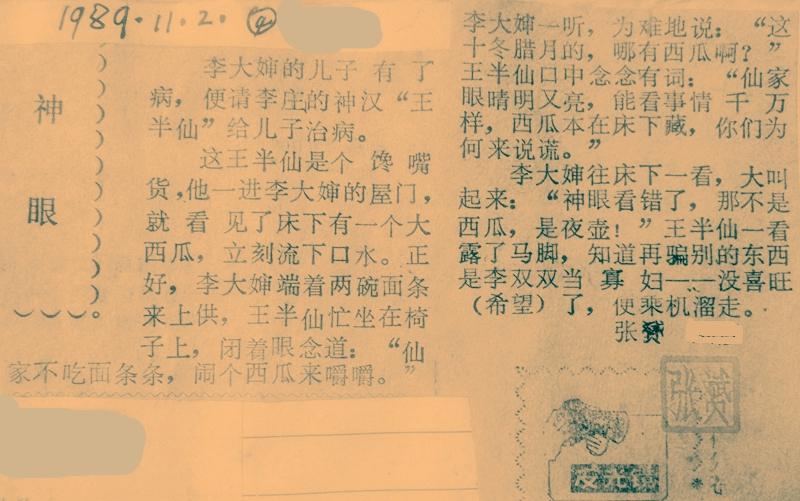 1989.11.2. ④
神眼
李大婶的儿子有了
病，便请李庄的神汉“王
半仙”给儿子治病。
这王半仙是个馋嘴
货，他一进李大婶的屋门，
就看见了床下有一个大
西瓜，立刻流下口水。正
好，李大婶端着两碗面条
来上供，王半仙忙坐在椅
子上，闭着眼念道：“仙
家不吃面条条，闹个西瓜来嚼嚼。”
李大婶一听，为难地说：“这
十冬腊月的，哪有西瓜啊？”
王半仙口中念念有词：“仙家
眼睛明又亮，能看事情千万
样，西瓜本在床下藏，你们为
何来说谎。”
李大婶往床下一看，大叫
起来：“神眼看错了，那不是
西瓜，是夜壶！”王半仙一看
露了马脚，知道再骗别的东西
是李双双当寡妇——没喜旺
（希望）了，便乘机溜走。
张赟
张赟